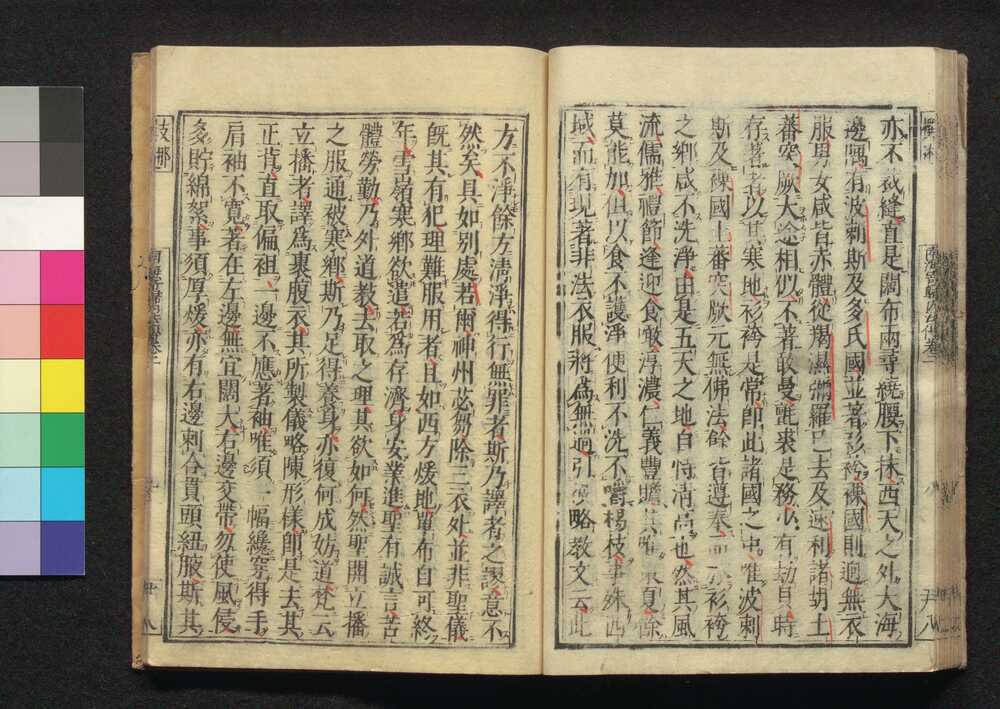 亦不裁縫直是闊布兩尋繞腰下抹西天之外大海
邊隅有波剌斯及多氏國並著衫袴裸國則迥無衣
服男女咸皆赤體從羯濕彌羅已去及速利諸胡土
蕃突厥大途相似不著敢曼氈裘是務少有劫貝時
存著者以其寒地衫袴是常即此諸國之中唯波剌
斯及裸國土蕃突厥元無佛法餘皆遵奉而於衫袴
之鄉咸不洗淨由是五天之地自恃清高也然其風
流儒雅禮節逢迎食噉淳濃仁義豐贍其唯東夏餘
莫能加但以食不護淨便利不洗不嚼楊枝事殊西
域而有現著非法衣服將為無過引彼略教文云此
方不淨餘方清淨得行無罪者斯乃譯者之謬意不
然矣具如別處若爾神州苾芻除三衣外並非聖儀
既其有犯理難服用者且如西方煖地單布自可終
年雪嶺寒鄉欲遣若為存濟身安業進聖有誠言苦
體勞勤乃外道教去取之理其欲如何然聖開立播
之服通被寒鄉斯乃足得養身亦復何成妨道梵云
立播者譯為裹腹衣其所製儀略陳形樣即是去其
正背直取偏袒一邊不應著袖唯須一幅纔穿得手
肩袖不寬著在左邊無宜闊大右邊交帶勿使風侵
多貯綿絮事須厚煖亦有右邊刺合貫頭紐腋斯其